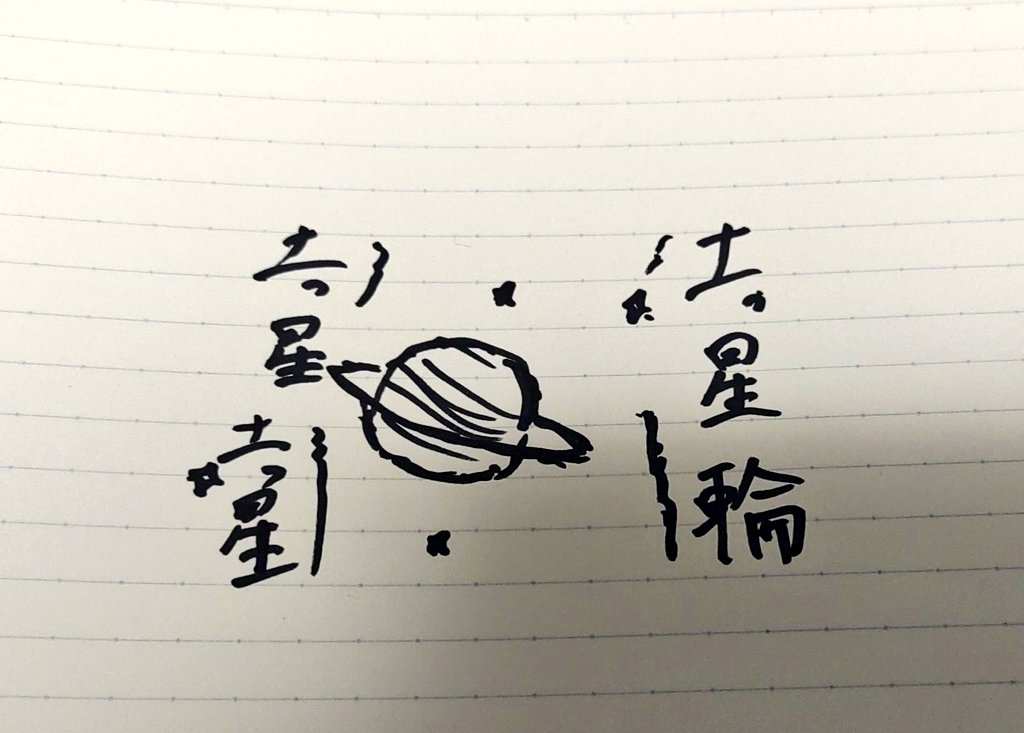 土星輪
土星
土星